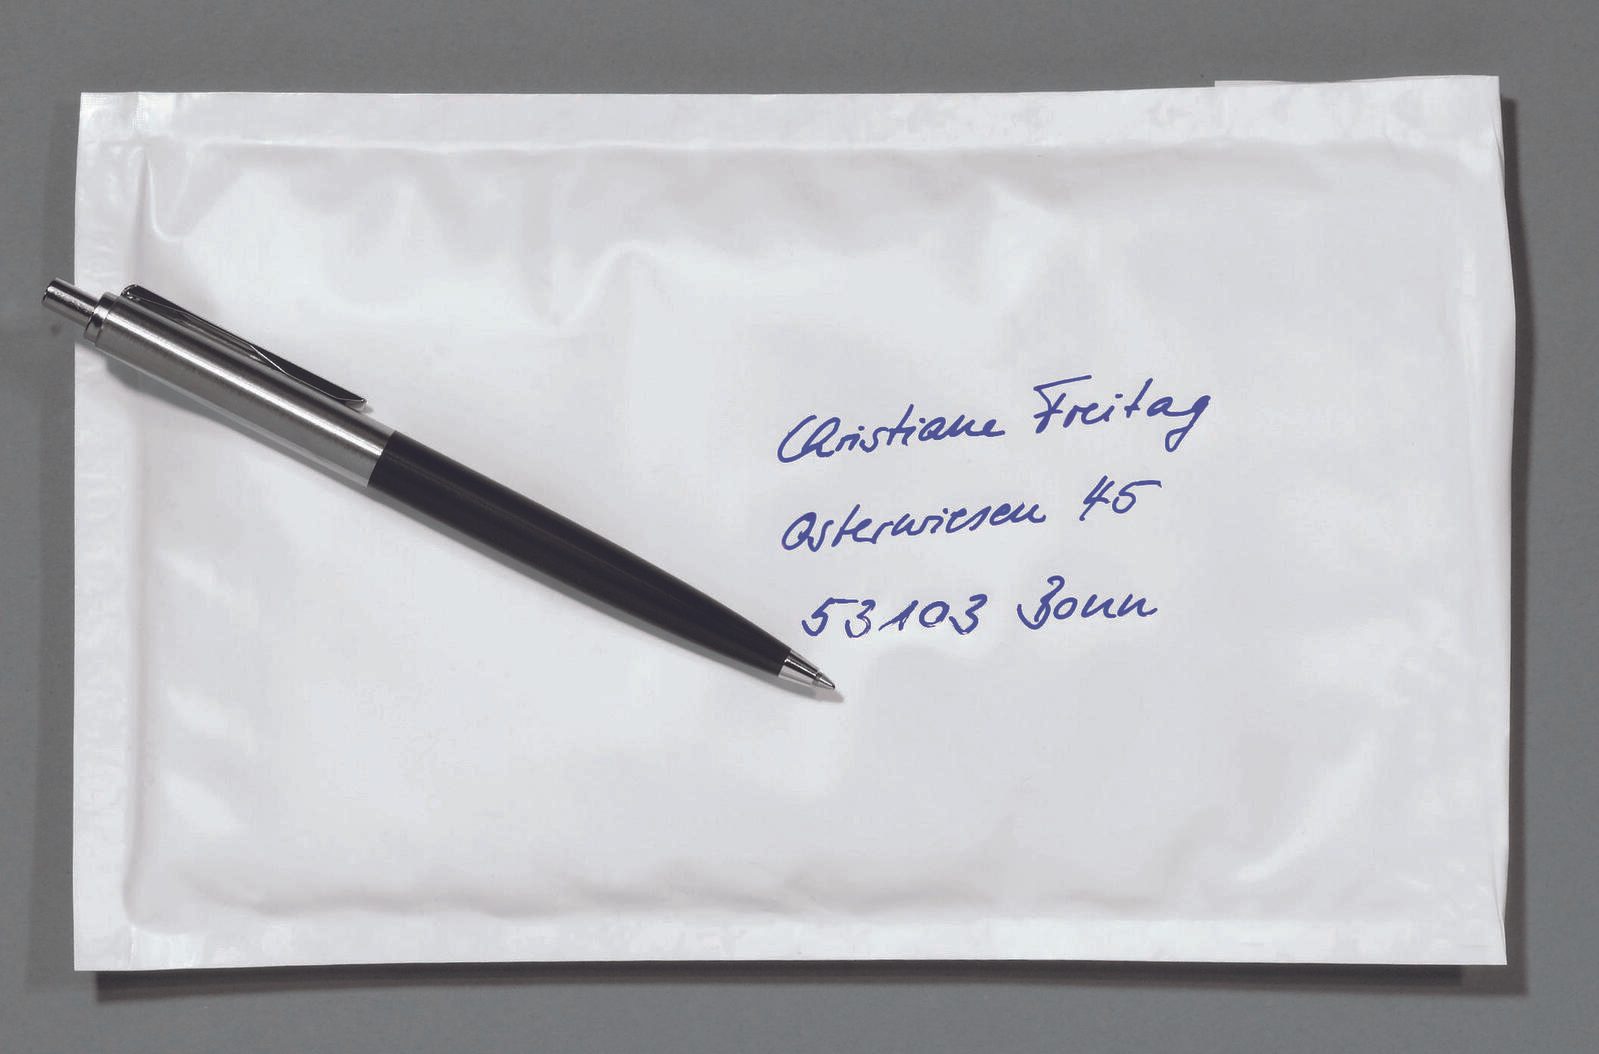 Christiane Freitag
Osterwiesen 45
53103 Bonn